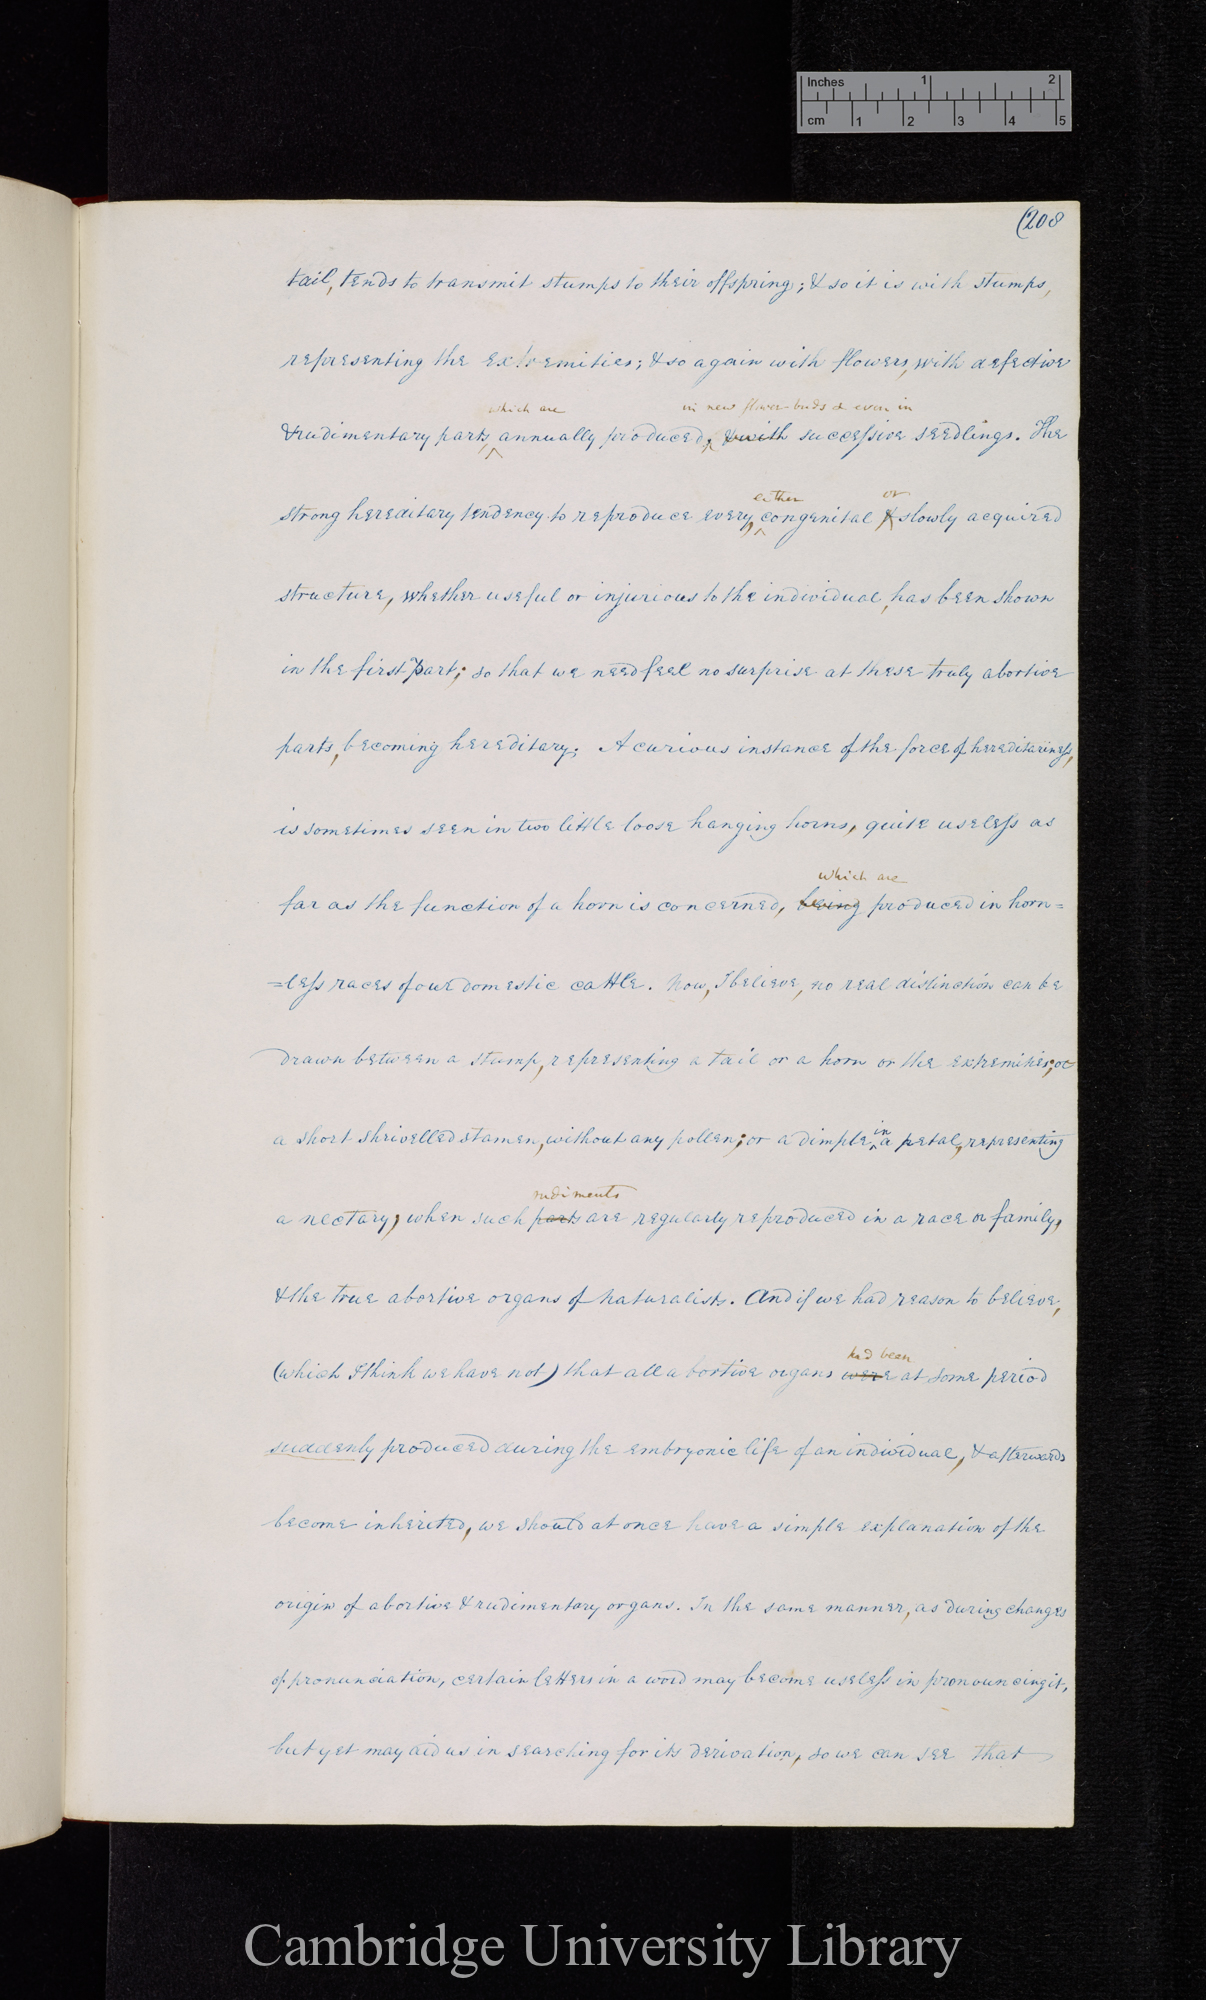 Inches 1 2
cm 1 2 3 4 5
(208
tail, tends to transmit stumps to their offspring; & so it is with stumps,
representing the extremities; & so again with flowers, with defective
which are in new flower-buds & even in
& rudimentary parts, annually produced, & with successive seedlings. The
either or
strong hereditary tendency to reproduce every, congenital & slowly acquired
structure, whether useful or injurious to the individual, has been shown
in the first Part; so that we need feel no surprise at these truly abortive
parts, becoming hereditary. A curious instance of the force of hereditariness,
is sometimes seen in two little loose hanging horns, quite useless as
which are
far as the function of a horn is concerned, being produced in horn=
=less races of our domestic cattle. Now, I believe, no real distinction can be
drawn between a stump, representing a tail or a horn or the extremities; or
in
a short shrivelled stamen, without any pollen; or a dimple a petal, representing
rudiments
a nectary, when such parts are regularly reproduced in a race or family,
& the true abortive organs of naturalists. And if we had reason to believe,
had been
(which I think we have not) that all abortive organs were at some period
suddenly produced during the embryonic life of an individual, & afterwards
become inherited, we should at once have a simple explanation of the
origin of abortive & rudimentary organs. In the same manner, as during changes
of pronunciation, certain letters in a word may become useless in pronouncing it,
but yet may aid us in searching for its derivation, so we can see that
Cambridge University Library